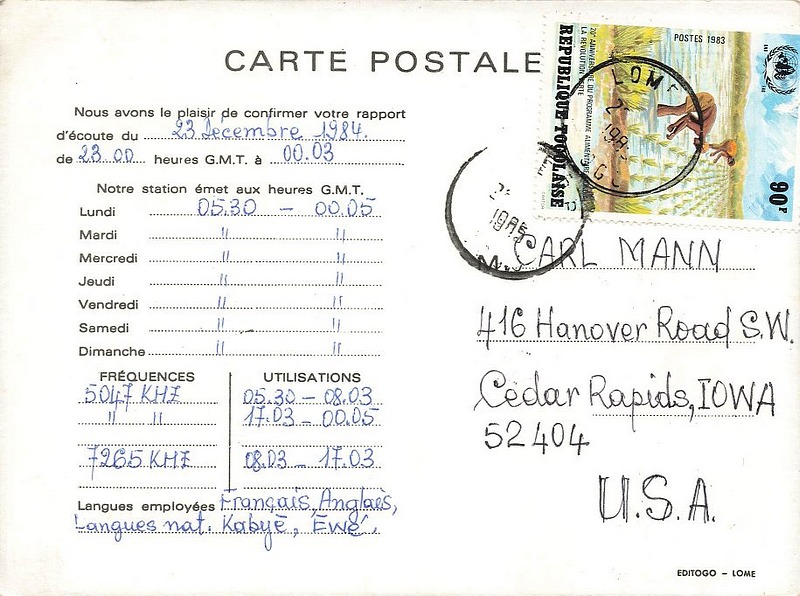 CARTE POSTALE
Nous avons le plaisir de confirmer votre rapport
d'écoute du 23 Décembre 1984.
de 23.00 heures G.M.T. à 00.03
Notre station émet aux heures G.M.T.
Lundi 05.30 - 00.05
Mardi " "
Mercredi " "
Jeudi " "
Vendredi " "
Samedi " "
Dimanche " "
FRÉQUENCES UTILISATIONS
5047 KHZ 05.30 - 08.03
" " 17.03 - 00.05
7265 KHZ 08.03 - 17.03
Langues employées Français, Anglais,
Langues nat. Kabyè, Ewé.
POSTES 1983
20e ANNIVERSAIRE DU PROGRAMME ALIMENTAIRE
LA REVOLUTION VERTE
REPUBLIQUE TOGOLAISE
90F
LOME
1985
CARL MANN
416 Hanover Road S.W.
Cedar Rapids, IOWA
52404
U.S.A.
EDITOGO - LOME